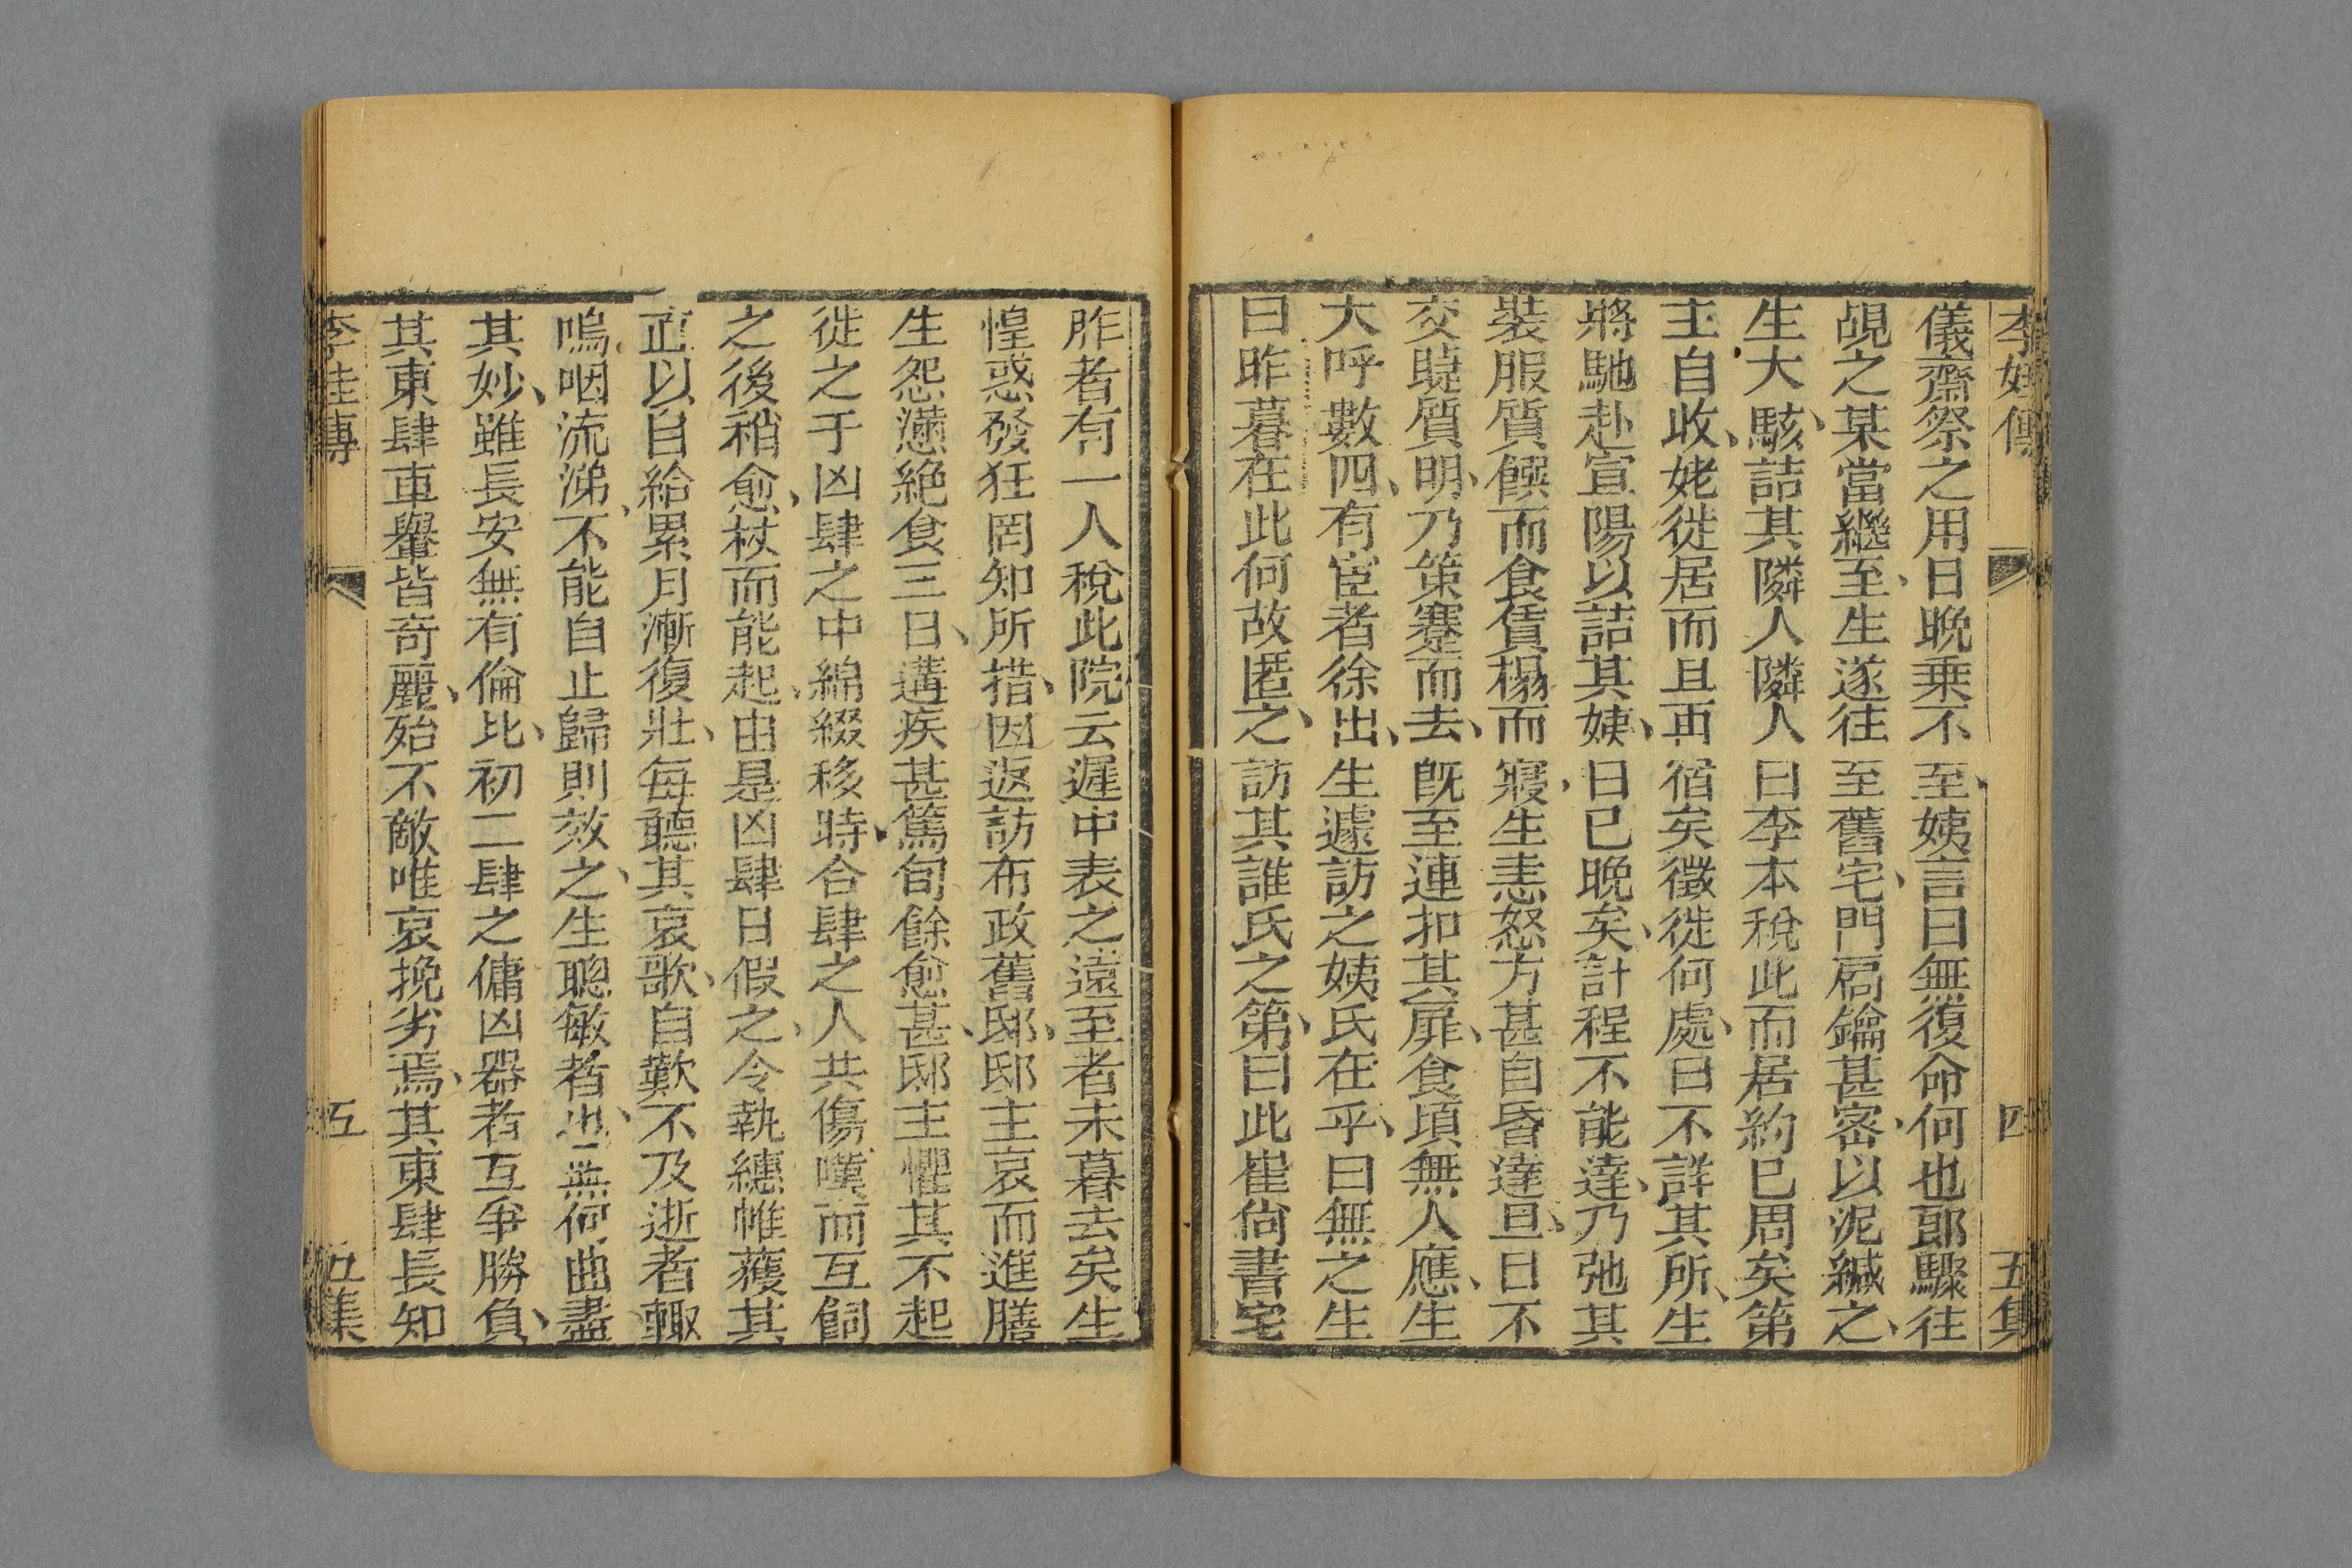 李娃傳 四 五集
儀齋祭之用日晚乗不至、姨言曰無復命何也郎驟往
覘之某當繼至、生遂往至舊宅、門扃鑰甚密、以泥緘之、
生大駭、詰其隣人隣人曰李本稅此而居約已周矣第
主自收、姥徙居而且再宿矣徵徙何處、曰不詳其所、生
將馳赴宣陽以詰其姨、日已晚矣、計程不能達、乃弛其
裝服質饌而食賃榻而寢、生恚怒方甚自昏達旦、目不
交睫質明、乃策蹇而去、旣至連扣其扉、食頃無人應、生
大呼數四、有宦者徐出、生遽訪之姨氏在乎、曰無之生
曰昨暮在此何故匿之、訪其誰氏之第、曰此崔尙書宅
昨者有一人稅此院云遲中表之遠至者未暮去矣生
惶惑發狂罔知所措、因返訪布政舊邸、邸主哀而進膳
生怨懣絶食三日、遘疾甚篤旬餘愈甚、邸主懼其不起
徙之于凶肆之中綿綴移時、合肆之人共傷嘆而互飼
之後稍愈、杖而能起、由是凶肆日假之、令執繐帷獲其
直以自給累月漸復壯、每聽其哀歌、自歎不及逝者輙
嗚咽流涕、不能自止歸則效之、生聰敏者也、無何曲盡
其妙、雖長安無有倫比、初二肆之傭凶器者互爭勝負、
其東肆車轝皆奇麗、殆不敵唯哀挽劣焉、其東肆長知
李娃傳 五 五集